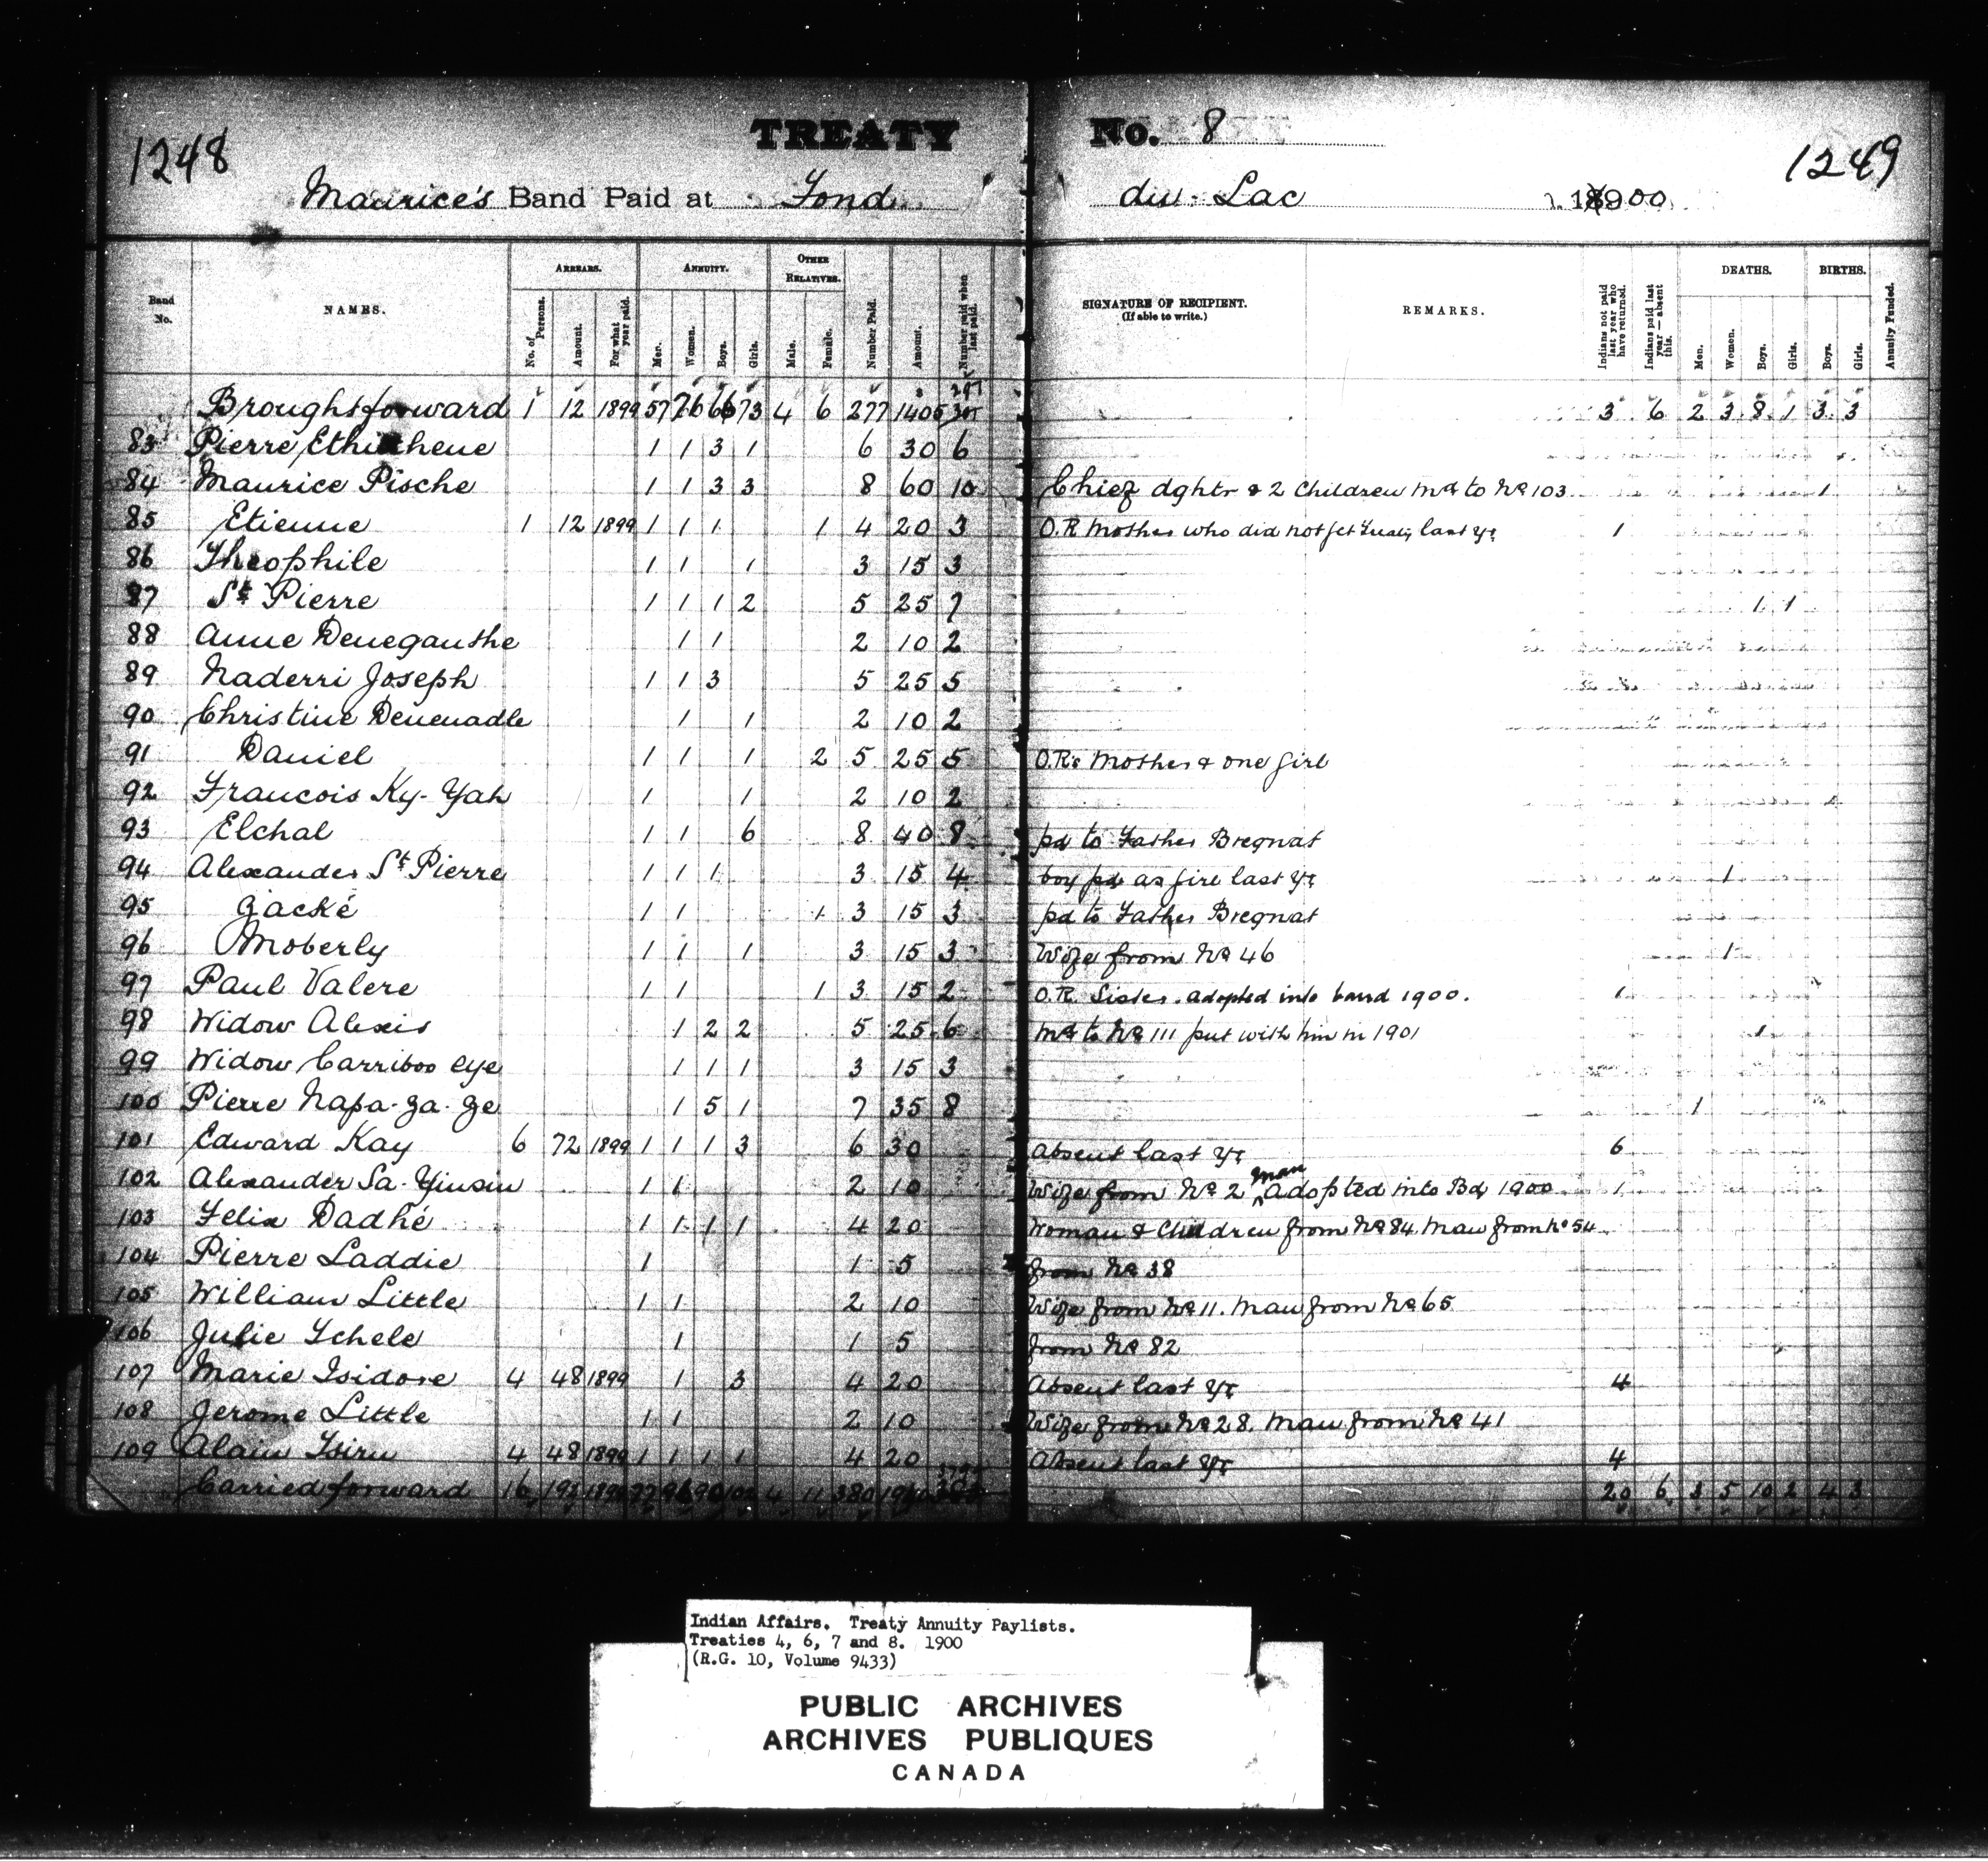 1248 TREATY No. 8 1249
Maurice's Band Paid at Fond du Lac 1900
Band No. NAMES. ARREARS. No. of Persons. Amount. For what year paid. ANNUITY. Men. Women. Boys. Girls. OTHER RELATIVES. Male. Female. Number Paid. Amount. Number paid when last paid. SIGNATURE OF RECIPIENT. (If able to write.) REMARKS. Indians not paid last year who have returned. Indians paid last year — absent this. DEATHS. Men. Women. Boys. Girls. BIRTHS. Boys. Girls. Annuity Funded.
Brought forward 1 12 1899 57 76 66 73 4 6 277 1405 3 6 2 3 8 1 3 3
83 Pierre 1 1 3 1 6 30 6
84 Maurice Pische 1 1 3 3 8 60 10 Chief dghtr & 2 Children Md to No 103 1
85 Etienne 1 12 1899 1 1 1 1 4 20 3 O.R Mother who did not get Treaty last yr 1
86 Theophile 1 1 1 3 15 3
87 St Pierre 1 1 1 2 5 25 7 1 1
88 Anne Deneganthe 1 1 2 10 2
89 Naderri Joseph 1 1 3 5 25 5
90 Christine Denenadle 1 1 2 10 2
91 Daniel 1 1 1 2 5 25 5 O.Rs Mother & one girl
92 Francois Ky-Yah 1 1 2 10 2
93 Elchal 1 1 6 8 40 8 pd to Father Bregnat
94 Alexander St Pierre 1 1 1 3 15 4 boy pd as girl last yr 1
95 Gacké 1 1 1 3 15 3 pd to Father Bregnat
96 Moberly 1 1 1 3 15 3 Wife from No 46 1
97 Paul Valere 1 1 1 3 15 2 O.R. Sister. adopted into band 1900. 1
98 Widow Alexis 1 2 2 5 25 6 Md to No 111 put with him in 1901 1
99 Widow Carriboo eye 1 1 1 3 15 3
100 Pierre Napa-ga-ge 1 5 1 7 35 8 1
101 Edward Kay 6 72 1899 1 1 1 3 6 30 Absent last yr 6
102 Alexander Sa-Yinsin 1 1 2 10 Wife from No 2 man adopted into Bd 1900 1
103 Felix Dadhé 1 1 1 1 4 20 Woman & Children from No 84 Man from No 54
104 Pierre Laddie 1 1 5 from No 38
105 William Little 1 1 2 10 Wife from No 11. Man from No 65
106 Julie Ychele 1 1 5 from No 82
107 Marie Isidore 4 48 1899 1 3 4 20 Absent last yr 4
108 Jerome Little 1 1 2 10 Wife from No 28. Man from No 41
109 Alain Tsiru 4 48 1899 1 1 1 1 4 20 Absent last yr 4
Carried forward 16 192 1899 77 96 90 102 4 11 380 20 6 3 5 10 2 4 3
Indian Affairs. Treaty Annuity Paylists.
Treaties 4, 6, 7 and 8. 1900
(R.G. 10, Volume 9433)
PUBLIC ARCHIVES
ARCHIVES PUBLIQUES
CANADA